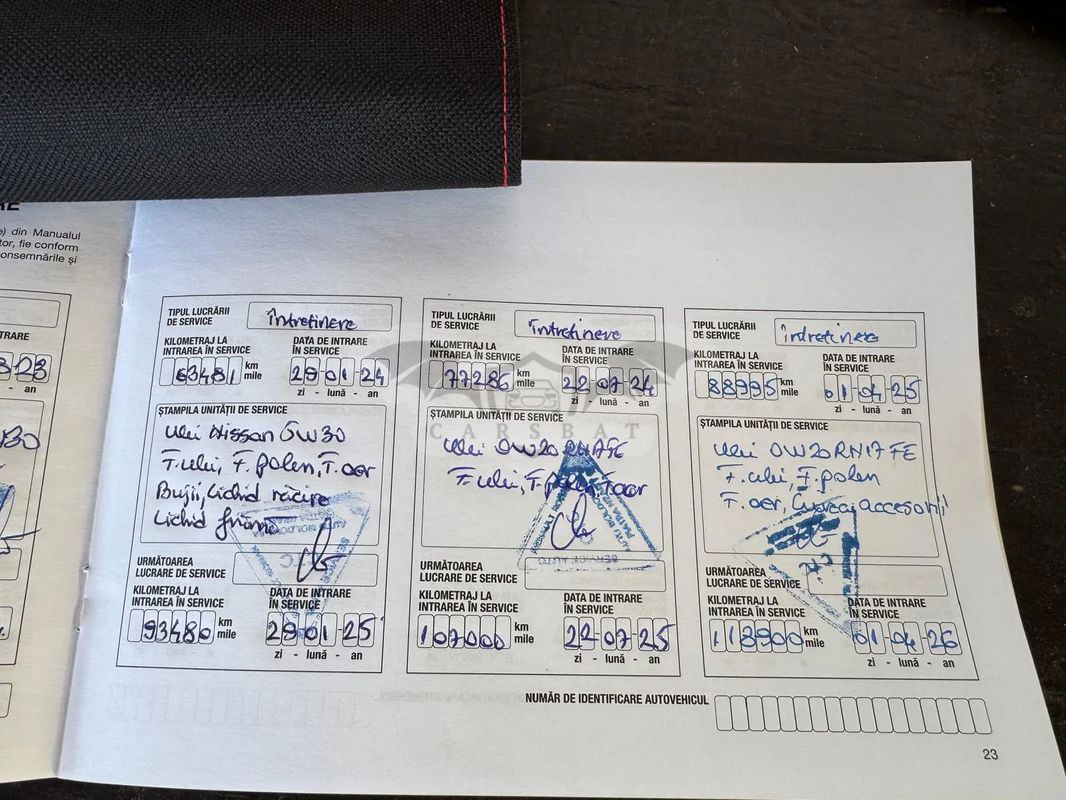 RE
e) din Manualul
tor, fie conform
onsemnările și
TRARE
3-23
- an
W30
TIPUL LUCRĂRII
DE SERVICE
întreținere
KILOMETRAJ LA
INTRAREA ÎN SERVICE
63481 km
mile
DATA DE INTRARE
ÎN SERVICE
29-01-24
zi - lună - an
ȘTAMPILA UNITĂȚII DE SERVICE
Ulei Nissan 5W30
F.ulei, F.polen, F.aer
Bujii, Lichid răcire
Lichid frână
URMĂTOAREA
LUCRARE DE SERVICE
KILOMETRAJ LA
INTRAREA ÎN SERVICE
93480 km
mile
DATA DE INTRARE
ÎN SERVICE
29-01-25
zi - lună - an
TIPUL LUCRĂRII
DE SERVICE
întreținere
KILOMETRAJ LA
INTRAREA ÎN SERVICE
77286 km
mile
DATA DE INTRARE
ÎN SERVICE
22-07-24
zi - lună - an
ȘTAMPILA UNITĂȚII DE SERVICE
Ulei 0W20
F.ulei, F.polen, F.aer
SERVICE AUTO
URMĂTOAREA
LUCRARE DE SERVICE
KILOMETRAJ LA
INTRAREA ÎN SERVICE
107000 km
mile
DATA DE INTRARE
ÎN SERVICE
22-07-25
zi - lună - an
TIPUL LUCRĂRII
DE SERVICE
întreținere
KILOMETRAJ LA
INTRAREA ÎN SERVICE
88995 km
mile
DATA DE INTRARE
ÎN SERVICE
01-04-25
zi - lună - an
ȘTAMPILA UNITĂȚII DE SERVICE
Ulei 0W20 RN17 FE
F.ulei, F.polen
F.aer, Curea accesorii
URMĂTOAREA
LUCRARE DE SERVICE
KILOMETRAJ LA
INTRAREA ÎN SERVICE
118900 km
mile
DATA DE INTRARE
ÎN SERVICE
01-04-26
zi - lună - an
CARSBAT
NUMĂR DE IDENTIFICARE AUTOVEHICUL
23